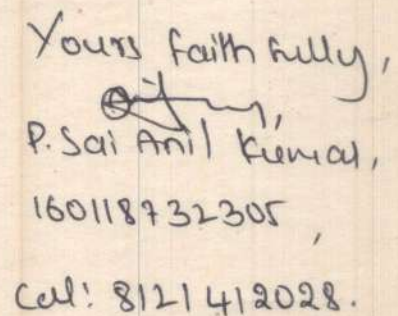 Yours faithfully,
P. Sai Anil Kumar,
160118732305,
Cell: 8121412028.